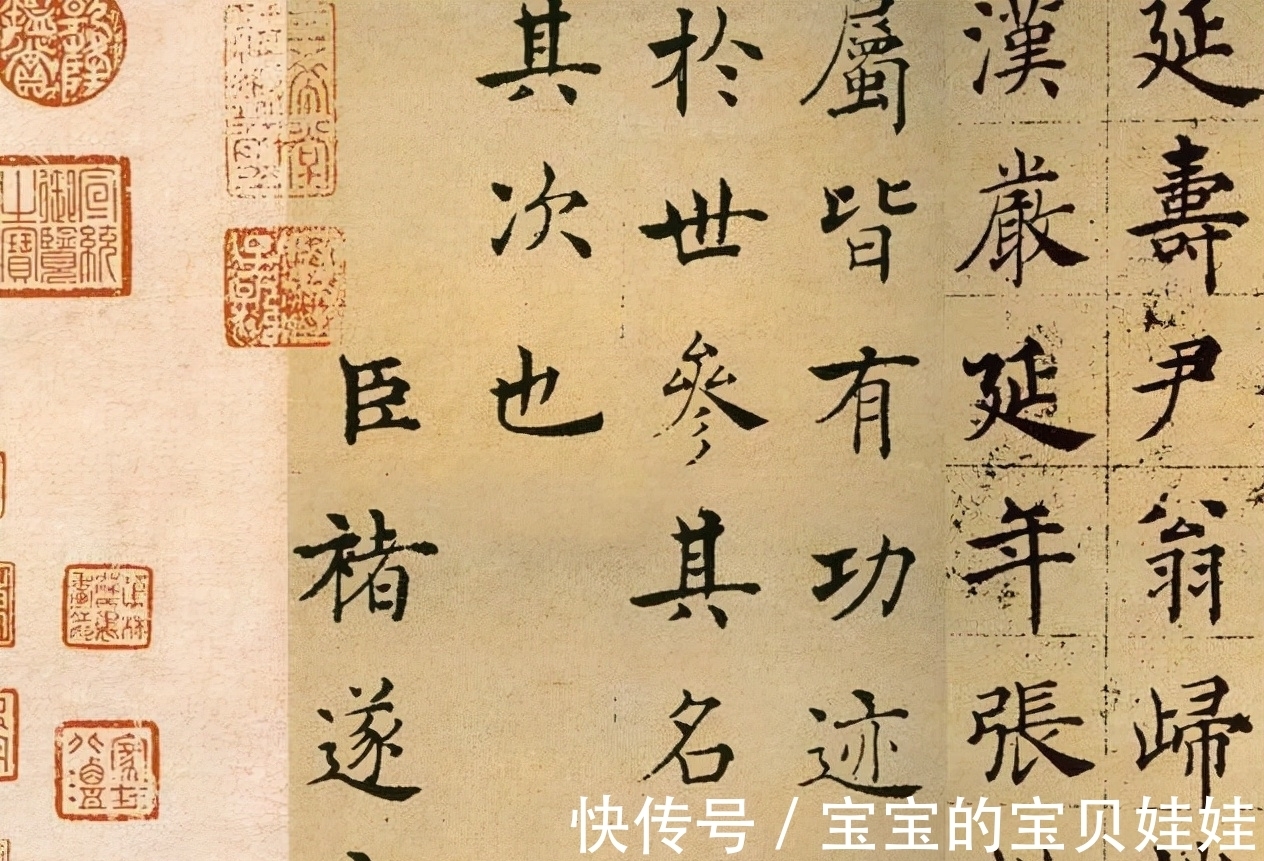 延壽尹翁歸
漢嚴延年張
屬皆有功迹
於世參其名
其次也
臣褚遂
宣統御覽之寶
快传号 / 宝宝的宝贝娃娃